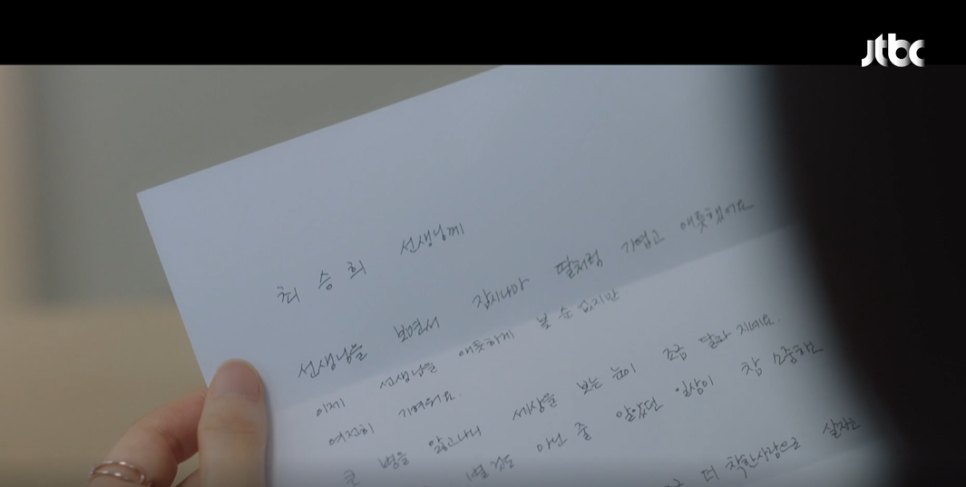 jtbc
최승희 선생님께
선생님을 보면서 잠시나마 딸처럼 귀엽고 애틋했어요
이제 선생님을 애틋하게 볼 순 없지만
여전히 귀여워요.
큰 병을 앓고나니 세상을 보는 눈이 조금 달라 지네요.
별 것도 아닌 줄 알았던 일상이 참 소중하고
더 착한사람으로 살고